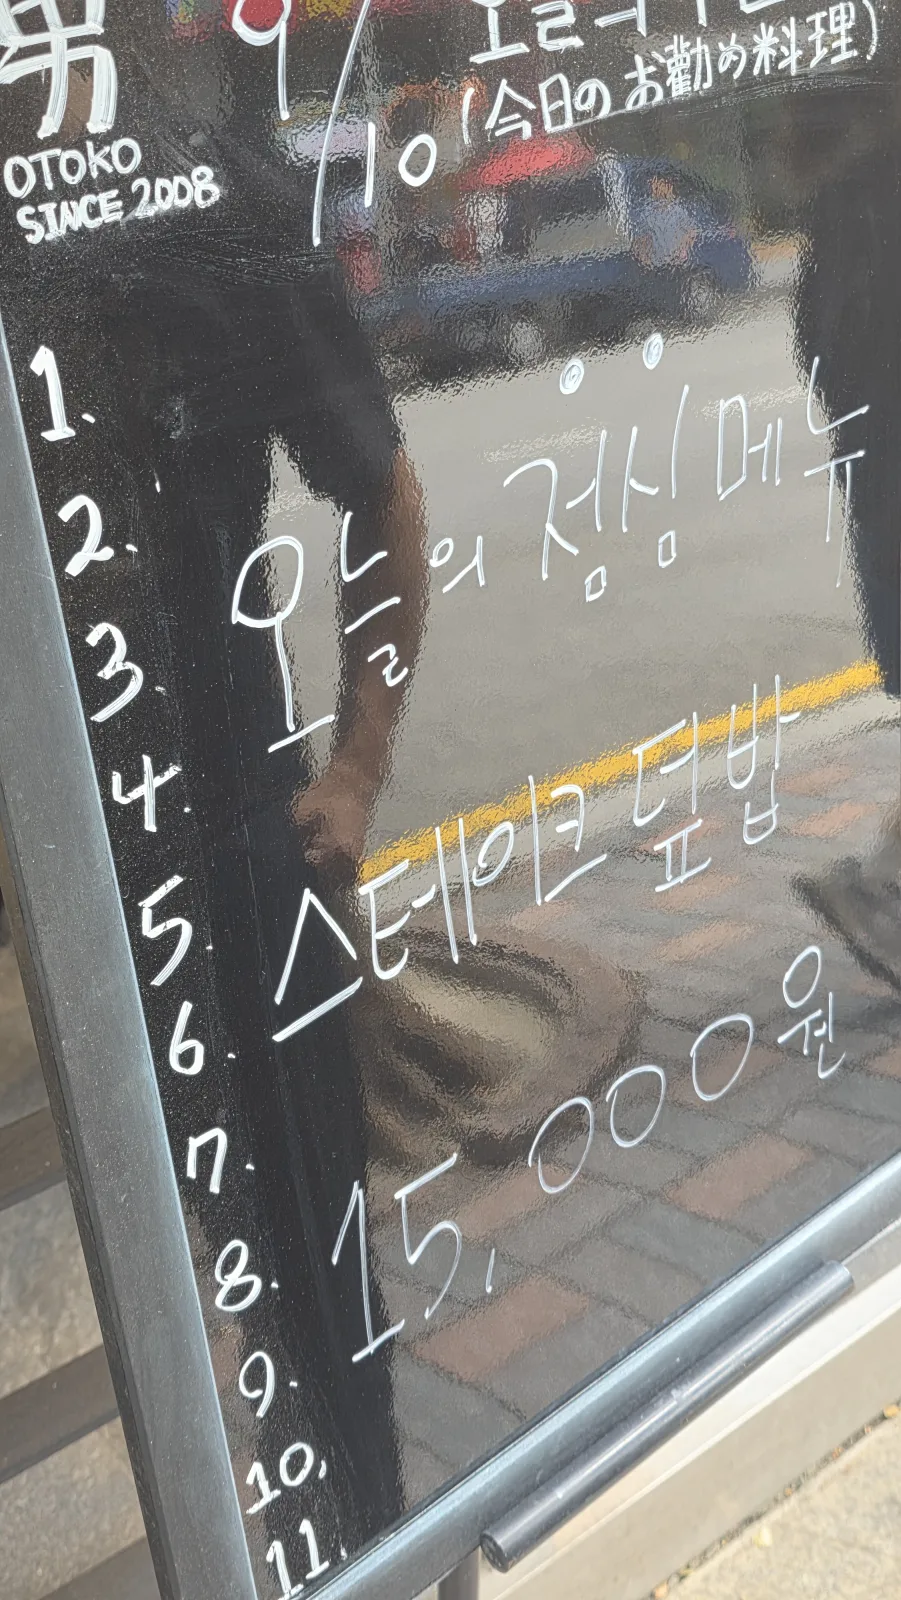 男
OTOKO
SINCE 2008
9/10
(今日のお勧め料理)
1.
2.
3.
4.
5.
6.
7.
8.
9.
10.
11.
오늘의 점심 메뉴
스테이크 덮밥
15,000원